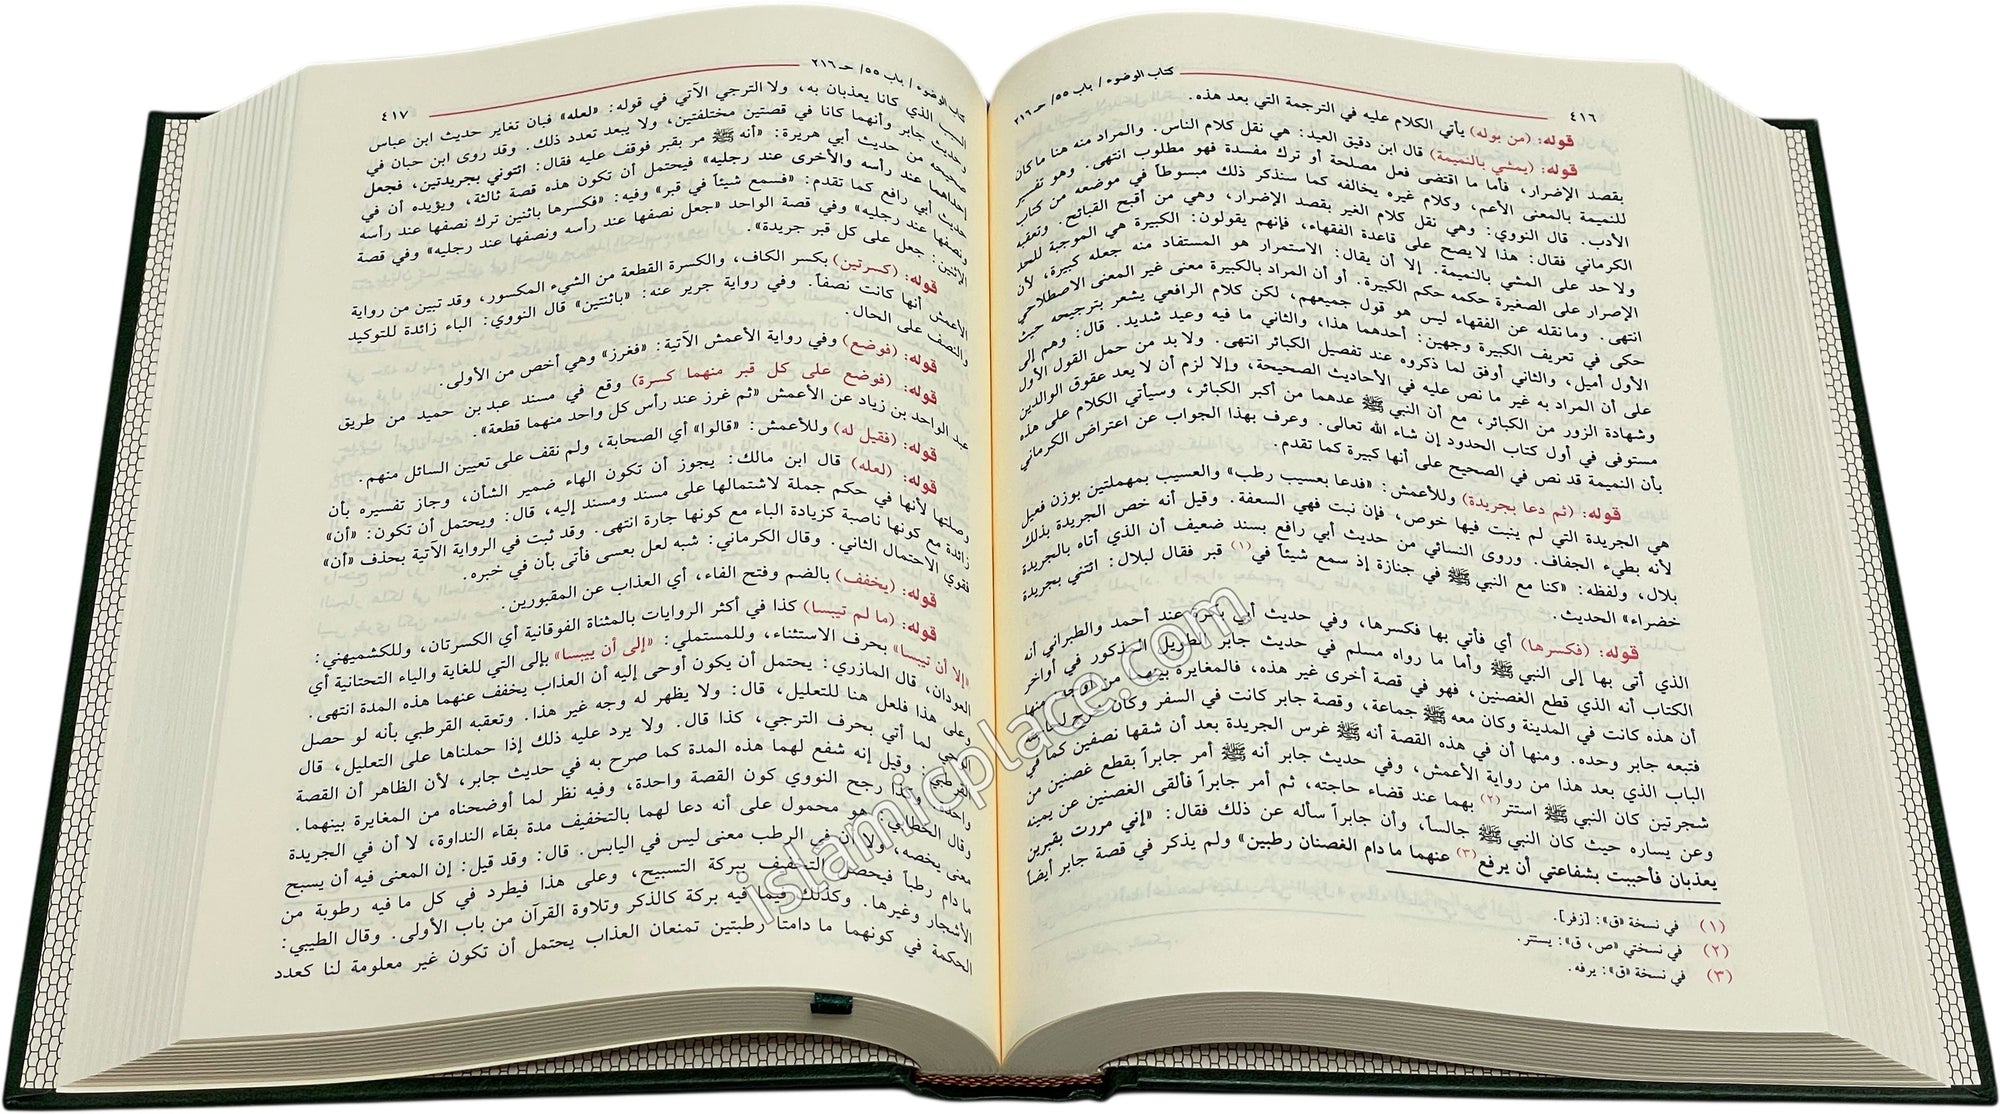 ٤١٦
كتاب الوضوء / باب ٥٥/ حـ ٢١٦
قوله: (من بوله) يأتي الكلام عليه في الترجمة التي بعد هذه.
قوله: (يمشي بالنميمة) قال ابن دقيق العيد: هي نقل كلام الناس. والمراد منه هنا ما كان
بقصد الإضرار، فأما ما اقتضى فعل مصلحة أو ترك مفسدة فهو مطلوب انتهى. وهو تفسير
للنميمة بالمعنى الأعم، وكلام غيره يخالفه كما سنذكر ذلك مبسوطاً في موضعه من كتاب
الأدب. قال النووي: وهي نقل كلام الغير بقصد الإضرار، وهي من أقبح القبائح. وتعقبه
الكرماني فقال: هذا لا يصح على قاعدة الفقهاء، فإنهم يقولون: الكبيرة هي الموجبة للحد
ولا حد على المشي بالنميمة. إلا أن يقال: الاستمرار هو المستفاد منه جعله كبيرة، لأن
الإصرار على الصغيرة حكمه حكم الكبيرة. أو أن المراد بالكبيرة معنى غير المعنى الاصطلاحي
انتهى. وما نقله عن الفقهاء ليس هو قول جميعهم، لكن كلام الرافعي يشعر بترجيحه حيث
حكى في تعريف الكبيرة وجهين: أحدهما هذا، والثاني ما فيه وعيد شديد. قال: وهم إلى
الأول أميل، والثاني أوفق لما ذكروه عند تفصيل الكبائر انتهى. ولا بد من حمل القول الأول
على أن المراد به غير ما نص عليه في الأحاديث الصحيحة، وإلا لزم أن لا يعد عقوق الوالدين
وشهادة الزور من الكبائر، مع أن النبي ﷺ عدهما من أكبر الكبائر، وسيأتي الكلام على هذه
مستوفى في أول كتاب الحدود إن شاء الله تعالى. وعرف بهذا الجواب عن اعتراض الكرماني
بأن النميمة قد نص في الصحيح على أنها كبيرة كما تقدم.
قوله: (ثم دعا بجريدة) وللأعمش: «فدعا بعسيب رطب» والعسيب بمهملتين بوزن فعيل
هي الجريدة التي لم ينبت فيها خوص، فإن نبت فهي السعفة. وقيل أنه خص الجريدة بذلك
لأنه بطيء الجفاف. وروى النسائي من حديث أبي رافع بسند ضعيف أن الذي أتاه بالجريدة
بلال، ولفظه: «كنا مع النبي ﷺ في جنازة إذ سمع شيئاً في(١) قبر فقال لبلال: ائتني بجريدة
خضراء» الحديث.
قوله: (فكسرها) أي فأتي بها فكسرها، وفي حديث أبي بكرة عند أحمد والطبراني أنه
الذي أتى بها إلى النبي ﷺ وأما ما رواه مسلم في حديث جابر الطويل المذكور في أواخر
الكتاب أنه الذي قطع الغصنين، فهو في قصة أخرى غير هذه، فالمغايرة بينهما من أوجه منها
أن هذه كانت في المدينة وكان معه ﷺ جماعة، وقصة جابر كانت في السفر وكان خرج
فتبعه جابر وحده. ومنها أن في هذه القصة أنه ﷺ غرس الجريدة بعد أن شقها نصفين كما في
الباب الذي بعد هذا من رواية الأعمش، وفي حديث جابر أنه ﷺ أمر جابراً بقطع غصنين من
شجرتين كان النبي ﷺ استتر(٢) بهما عند قضاء حاجته، ثم أمر جابراً فألقى الغصنين عن يمينه
وعن يساره حيث كان النبي ﷺ جالساً، وأن جابراً سأله عن ذلك فقال: «إني مررت بقبرين
يعذبان فأحببت بشفاعتي أن يرفع(٣) عنهما ما دام الغصنان رطبين» ولم يذكر في قصة جابر أيضاً
(١) في نسخة «ق»: [زفر].
(٢) في نسختي «ص، ق»: يستتر.
(٣) في نسخة «ق»: يرفه.
كتاب الوضوء / باب ٥٥/ حـ ٢١٦
٤١٧
السبب الذي كانا يعذبان به، ولا الترجي الآتي في قوله: «لعله» فبان تغاير حديث ابن عباس
وحديث جابر وأنهما كانا في قصتين مختلفتين، ولا يبعد تعدد ذلك. وقد روى ابن حبان في
صحيحه من حديث أبي هريرة: «أنه ﷺ مر بقبر فوقف عليه فقال: ائتوني بجريدتين، فجعل
إحداهما عند رأسه والأخرى عند رجليه» فيحتمل أن تكون هذه قصة ثالثة، ويؤيده أن في
حديث أبي رافع كما تقدم: «فسمع شيئاً في قبر» وفيه: «فكسرها باثنين ترك نصفها عند رأسه
ونصفها عند رجليه» وفي قصة الواحد «جعل نصفها عند رأسه ونصفها عند رجليه» وفي قصة
الإثنين: جعل على كل قبر جريدة».
قوله: (كسرتين) بكسر الكاف، والكسرة القطعة من الشيء المكسور، وقد تبين من رواية
الأعمش أنها كانت نصفاً. وفي رواية جرير عنه: «باثنتين» قال النووي: الباء زائدة للتوكيد
والنصف على الحال.
قوله: (فوضع) وفي رواية الأعمش الآتية: «فغرز» وهي أخص من الأولى.
قوله: (فوضع على كل قبر منهما كسرة) وقع في مسند عبد بن حميد من طريق
عبد الواحد بن زياد عن الأعمش «ثم غرز عند رأس كل واحد منهما قطعة».
قوله: (فقيل له) وللأعمش: «قالوا» أي الصحابة، ولم نقف على تعيين السائل منهم.
قوله: (لعله) قال ابن مالك: يجوز أن تكون الهاء ضمير الشأن، وجاز تفسيره بأن
وصلتها لأنها في حكم جملة لاشتمالها على مسند ومسند إليه، قال: ويحتمل أن تكون: «أن»
زائدة مع كونها ناصبة كزيادة الباء مع كونها جارة انتهى. وقد ثبت في الرواية الآتية بحذف «أن»
فقوي الاحتمال الثاني. وقال الكرماني: شبه لعل بعسى فأتى بأن في خبره.
قوله: (يخفف) بالضم وفتح الفاء، أي العذاب عن المقبورين.
قوله: (ما لم تيبسا) كذا في أكثر الروايات بالمثناة الفوقانية أي الكسرتان، وللكشميهني:
«إلا أن تيبسا» بحرف الاستثناء، وللمستملي: «إلى أن ييبسا» بإلى التي للغاية والياء التحتانية أي
العودان، قال المازري: يحتمل أن يكون أوحى إليه أن العذاب يخفف عنهما هذه المدة انتهى.
وعلى هذا فلعل هنا للتعليل، قال: ولا يظهر له وجه غير هذا. وتعقبه القرطبي بأنه لو حصل
الوحي لما أتي بحرف الترجي، كذا قال. ولا يرد عليه ذلك إذا حملناها على التعليل، قال
القرطبي: وقيل إنه شفع لهما هذه المدة كما صرح به في حديث جابر، لأن الظاهر أن القصة
واحدة. وكذا رجح النووي كون القصة واحدة، وفيه نظر لما أوضحناه من المغايرة بينهما.
وقال الخطابي: هو محمول على أنه دعا لهما بالتخفيف مدة بقاء النداوة، لا أن في الجريدة
معنى يخصه، ولا أن في الرطب معنى ليس في اليابس. قال: وقد قيل: إن المعنى فيه أن يسبح
ما دام رطباً فيحصل التخفيف ببركة التسبيح، وعلى هذا فيطرد في كل ما فيه رطوبة من
الأشجار وغيرها. وكذلك فيما فيه بركة كالذكر وتلاوة القرآن من باب الأولى. وقال الطيبي:
الحكمة في كونهما ما دامتا رطبتين تمنعان العذاب يحتمل أن تكون غير معلومة لنا كعدد
islamicplace.com